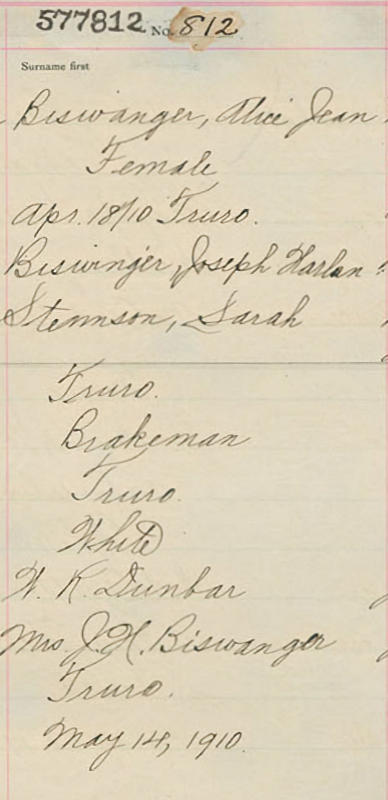 577812 No. 812
Surname first
Biswanger, Alice Jean
Female
Apr. 18/10 Truro.
Biswinger, Joseph Harlan
Stennson, Sarah
Truro.
Brakeman
Truro.
White
W. K. Dunbar
Mrs. J. H. Biswanger
Truro.
May 14, 1910.